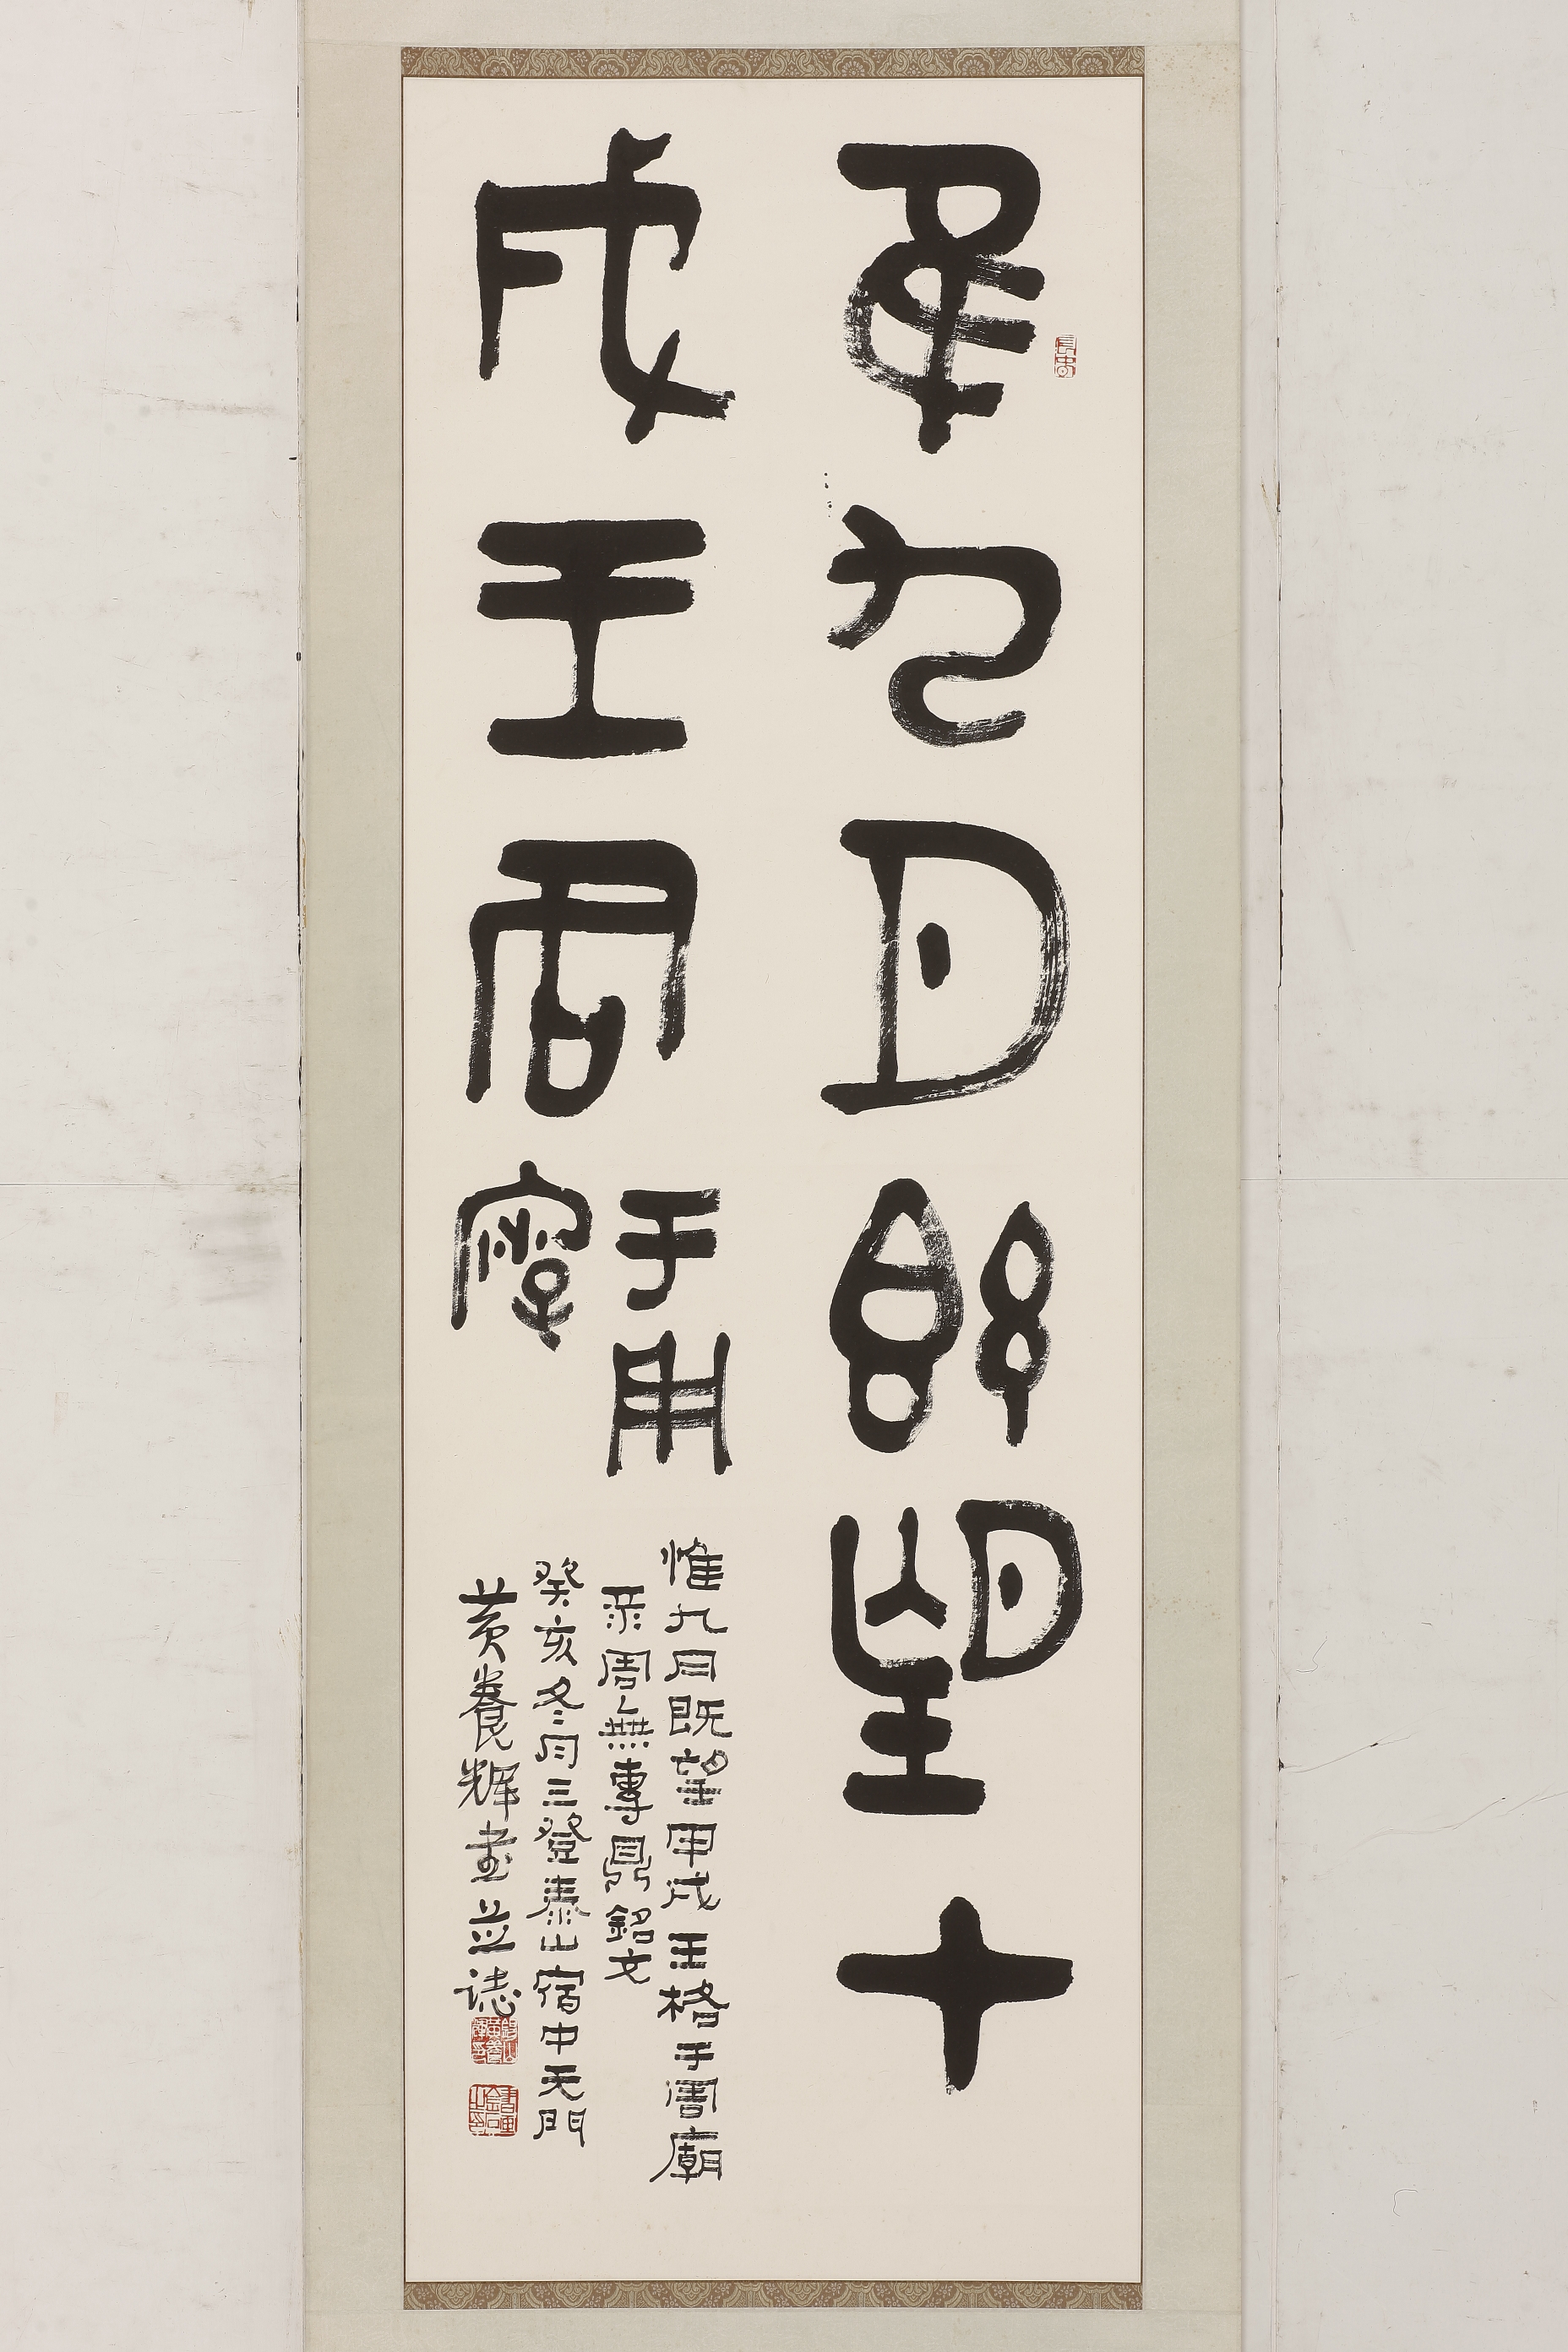 隹九月既望甲
戌王各于周廟
惟九月既望甲戌王格于周廟
周無專鼎銘文
癸亥冬月三登泰山宿中天門
黄養輝書並誌
長壽